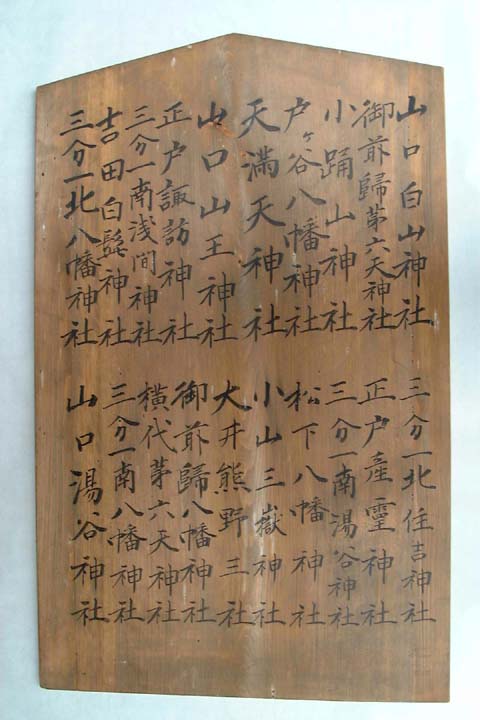 山口白山神社
御前歸茅六天神社
小踊山神社
戸ヶ谷八幡神社
天満天神社
山口山王神社
正戸諏訪神社
三分一南浅间神社
吉田白髭神社
三分一北八幡神社
三分一北住吉神社
正戸産霊神社
三分一南湯谷神社
松下八幡神社
小山三嶽神社
大井熊野三社
御前歸八幡神社
横代茅六天神社
三分一南八幡神社
山口湯谷神社